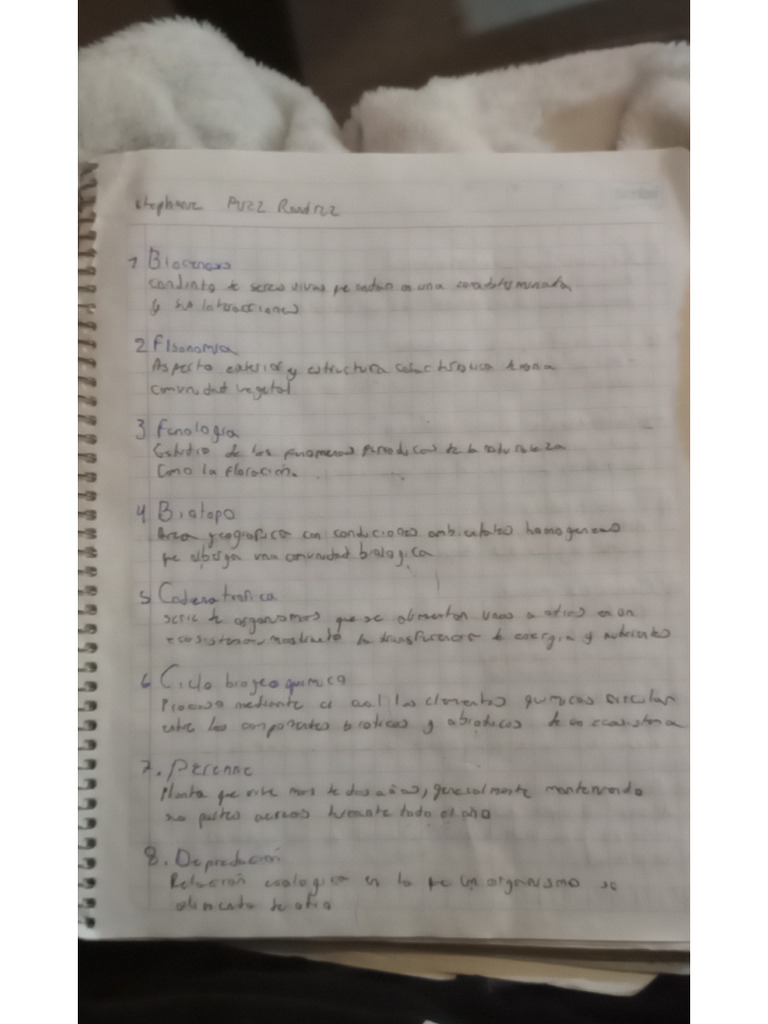 1 Biocenosis
Conjunto de seres vivos que habitan en una
y sus interacciones
2 Fisonomia
Aspecto exterior y estructura caracteristica de una
comunidad vegetal
3 Fenologia
Estudio de los fenomenos periodicos de la naturaleza
Como la floración.
4 Biotopo
Area geografica con condiciones ambientales homogeneas
que alberga una comunidad biologica
5 Cadena trofica
serie de organismos que se alimentan unos a otros en un
ecosistema, mostrando la transferencia de energia y nutrientes
6 Ciclo biogeoquimico
Proceso mediante el cual los elementos quimicos circulan
entre los componentes bioticos y abioticos de un ecosistema
7. Perenne
Planta que vive mas de dos años, generalmente manteniendo
sus partes aereas durante todo el año
8. Depredación
Relación ecologica en la que un organismo se
alimenta de otro